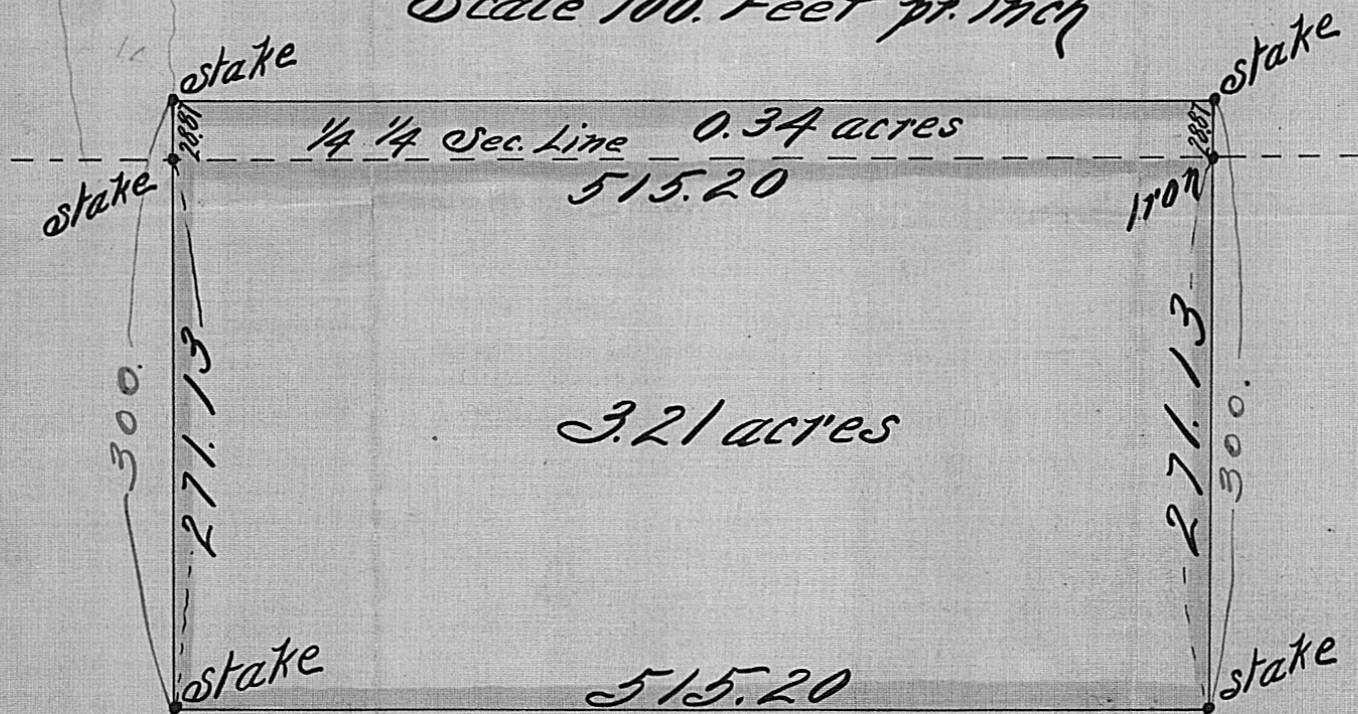 Scale 100. Feet pr. Inch
Stake
Stake
28.87
1/4 1/4 Sec. Line 0.34 acres
28.87
stake
515.20
Iron
300.
271.13
3.21 acres
271.13
300.
stake
515.20
stake